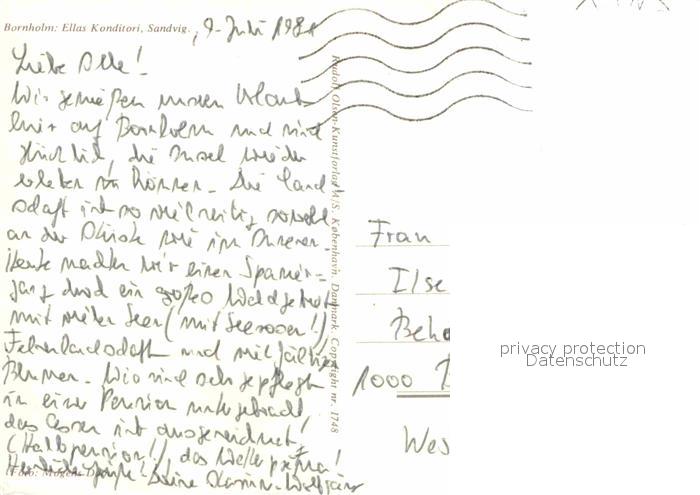 Bornholm: Ellas Konditori, Sandvig.
9. Juli 1981
Liebe Alle!
Wir genießen unseren Urlaub
hier auf Bornholm und sind
glücklich, die Insel wieder
erleben zu können. Die Land
schaft ist so vielseitig, sowohl
an der Küste wie im Inneren.
Heute machten wir einen Spazier-
gang durch ein großes Waldgebiet
mit vielen Seen (mit Seerosen!)
Felsenlandschaft und vielfältigen
Blumen. Wir sind sehr gepflegt
in einer Pension untergebracht,
das Essen ist ausgezeichnet,
(Halbpension!), das Wetter prima!
Herzliche Grüße! Wolfgang
(Foto: Mogens
Rudolf Olsen-Kunstforlag A/S. København. Danmark. Copyright nr. 1748
Frau
Ilse
1000
Wes
privacy protection
Datenschutz